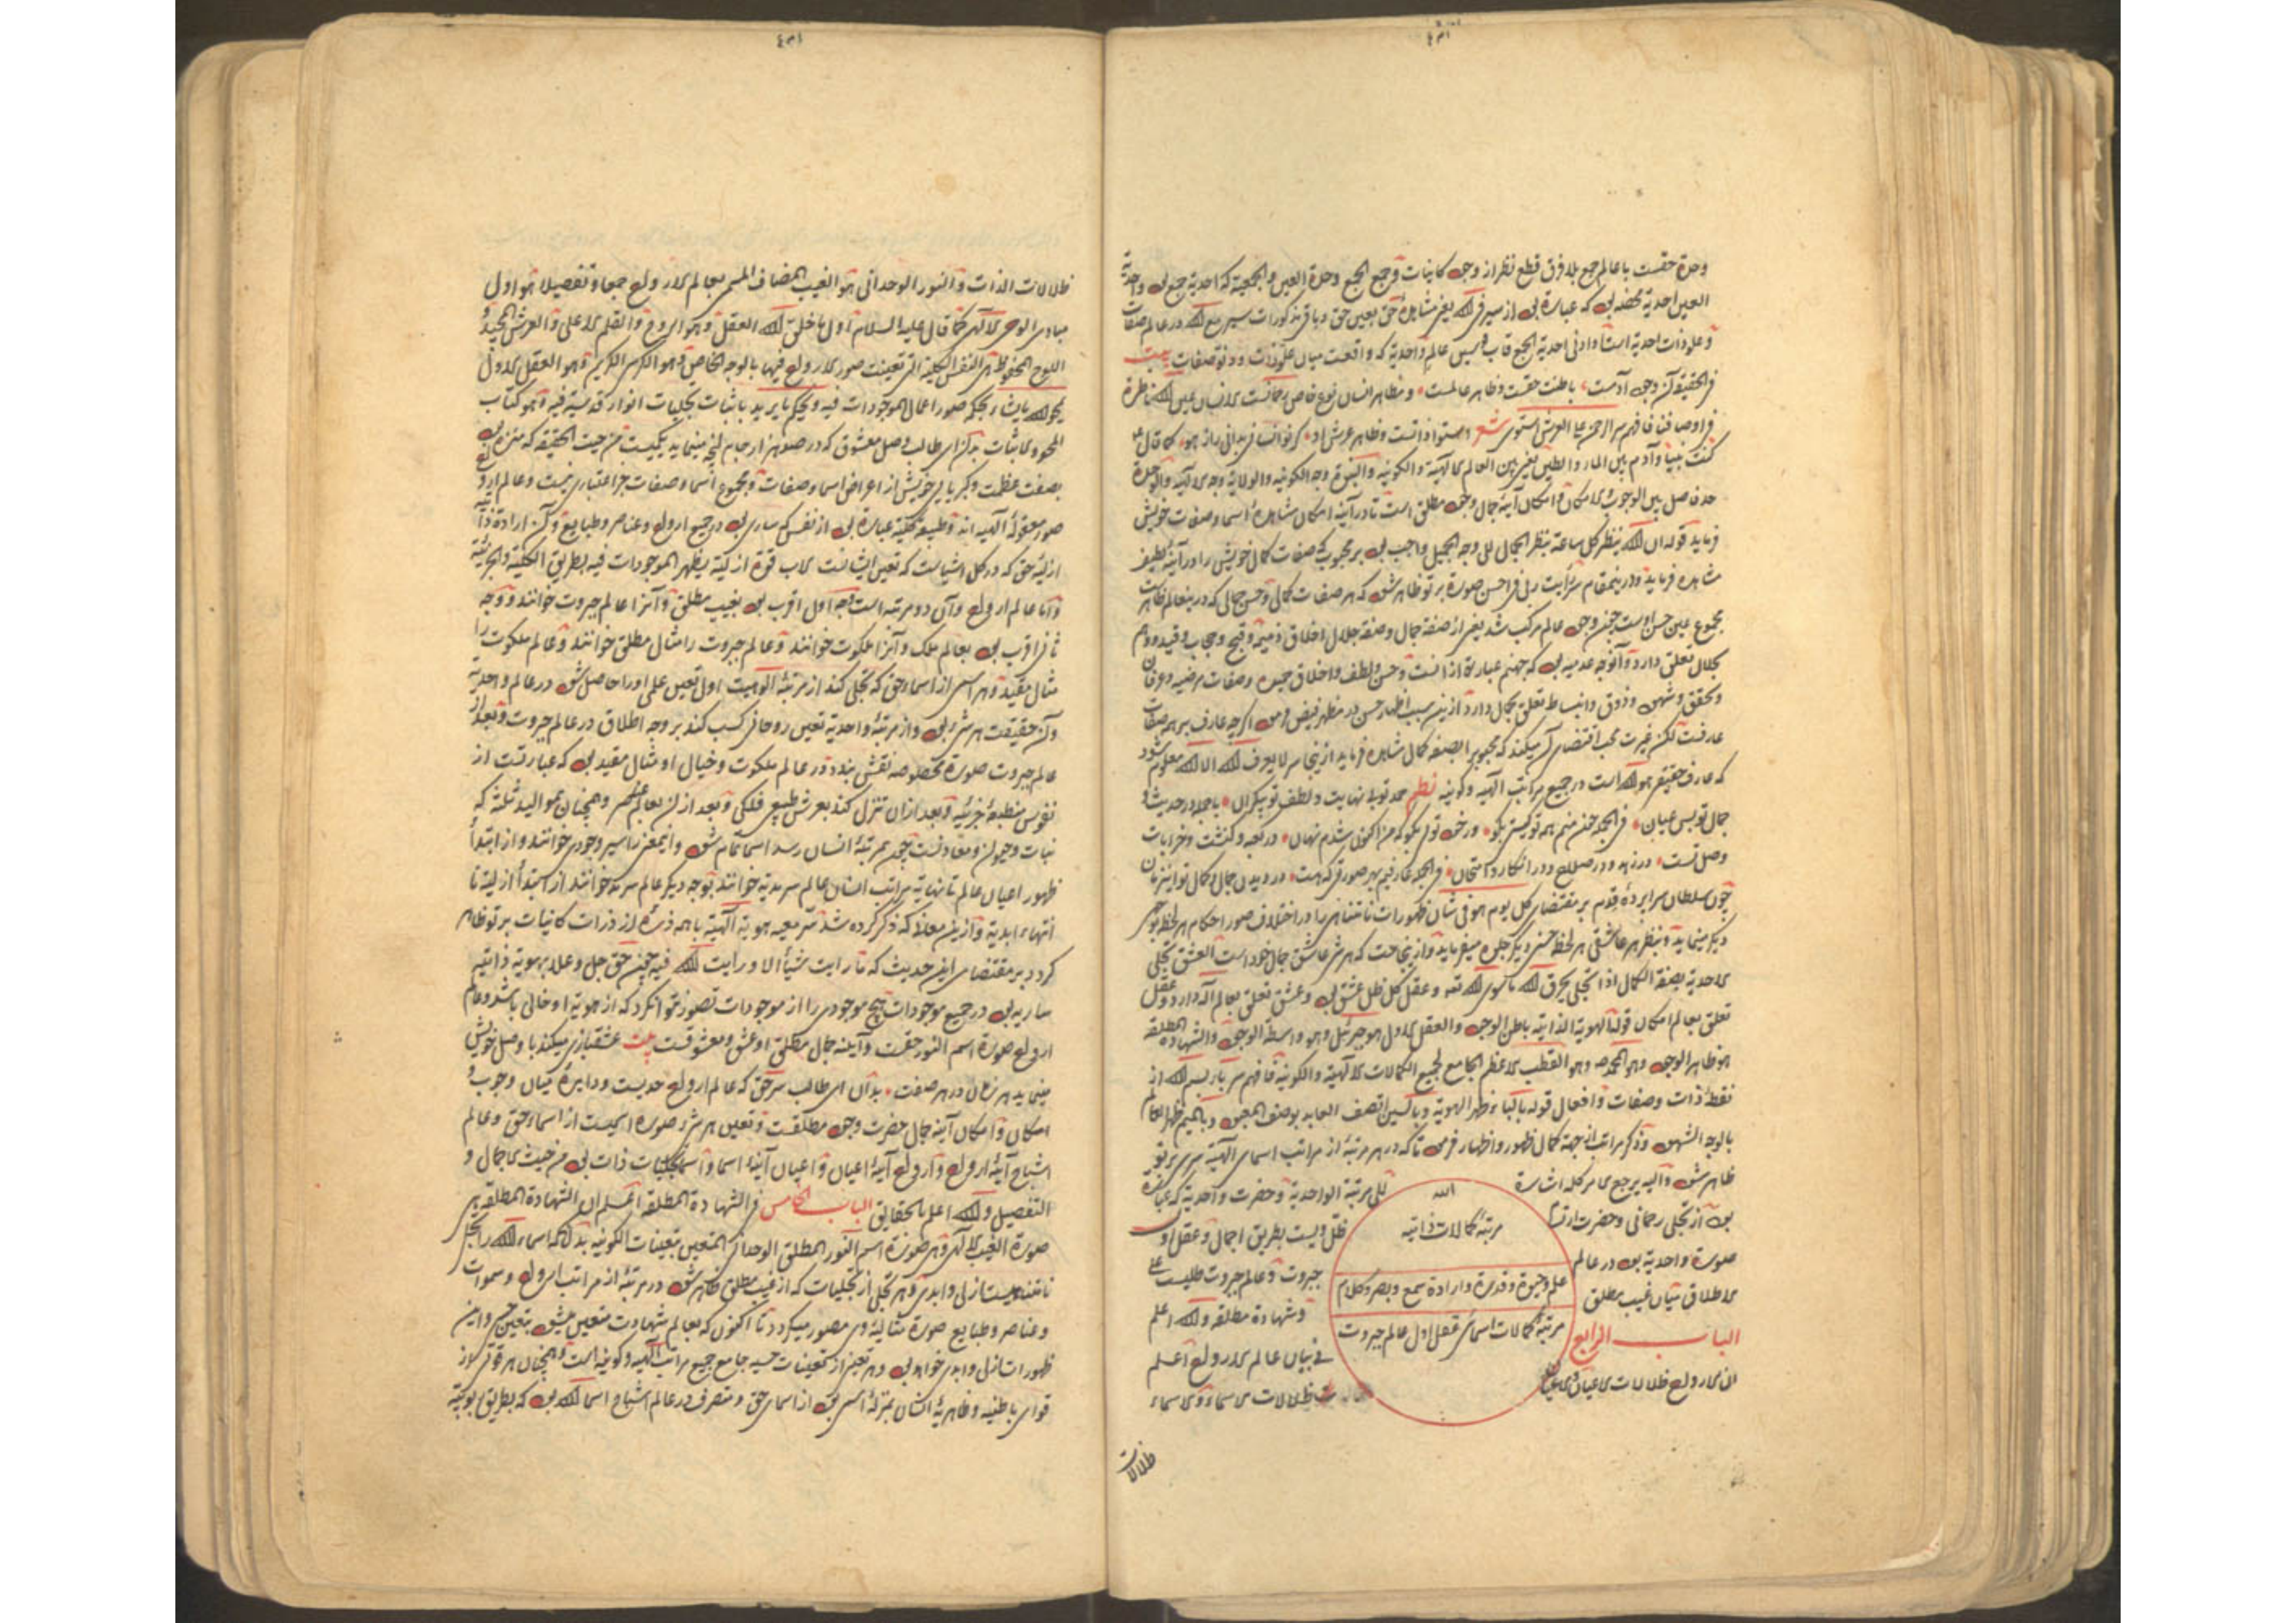 وحدة حقست با عالم جمع بلا فرق قطع نظر از وجود کاینات و جمع الجمع وحدة العین والجمعیة که احدیة جمع بود واحدیة
العین احدیة محضه بود که عبارة بود از سیر فی الله یعنی مشاهدهٔ حق بعین حق
و علو ذات احدیة است او ادنی احدیة الجمع قاب قوسین عالم واحدیة که واقعست میان علو ذات ودنو صفات بیت
فی الحقیقة کز وجود آدمست باطنت حقست وظاهر عالمست ومظاهر انسان نوع خاص رحمانست
الرحمن علی العرش استوی شعر
کنت نبیا وآدم بین الماء والطین یعنی بین العالم الالهیة والکونیة والنبوة وجه الکونیه والولایة وجه الالهیه والوحدة
حد فاصل بین الوجوب والامکان وامکان آینهٔ جمال وجود مطلق است تا در آینهٔ امکان مشاهدهٔ اسما وصفات خویش
فرماید قوله ان الله ینظر کل ساعة بنظر الجمال الی وجه الجمیل واجب بود بر محبوب که صفات کمال خویش را در آینهٔ لطیف
مشاهده فرماید ودرینمقام سر رأیت ربی فی احسن صورة بر تو ظاهر شود که هر صفات کمال وحسن جمالی که درینعالم ظاهرست
مجموع عین حسن اوست چون وجود عالم مرکب شد یعنی از صفة جمال وصفة جلال اخلاق ذمیمه وقبح وحجاب وقید ووهم
بجلال تعلق دارد وآنوجه عدمیه بود که جهنم عبارة از انست وحسن ولطف واخلاق حمیده وصفات مرضیه وعرفان
وتحقق وشهود وذوق وانبساط تعلق بجمال دارد ازین سبب اظهار حسن در مظهر فیض
عارفست لکن غیرت محب اقتضای آن میکند که محبوب را بصفه کمال مشاهده فرماید از ینجا سر لا یعرف الله الا الله معلوم شود
که عارف حقیقی هو الله است در جمیع مراتب الهیه وکونیه نظم حمد تو بی نهایت ولطف تو بیکران با جمله در حدیث و
جمال تو بس عیان فی الجمله چون منم همه تو کیستی بگو ور خود تویی بگو که من اکنون شدم نهان در کعبه وکنشت وخرابات
چون سلطان سراپردهٔ قدم بر مقتضای کل یوم هو فی شان ظهورات نامتناهی را در اختلاف صور احکام
دیگر مینماید وبنظر هر عاشقی هر لحظه حسنی دیگر جلوه میفرماید وازینجاست که هرشی عاشق جمال خود است العشق تجلی
الاحدیة بصفة الکمال اذا تجلی یحرق الله ما سوی الله وعقل کل ظل عشق بود وعشق تعلق بعالم اله دارد وعقل
تعلق بعالم امکان قوله الهویة الذاتیه باطن الوجود والعقل الاول هو جبرئیل وهو واسطة الوجود والشهادة المطلقة
هو ظاهر الوجود وهو محمد وهو القطب الاعظم الجامع لجمیع الکمالات الالهیة والکونیة فافهم سر باء بسم الله از
نقطهٔ ذات وصفات وافعال قوله بالباء ظهر الهویة وبالسین اتصف العابد بوصف المعبود وبالمیم ظهر العالم
بالوجه الشهود وذکر مراتب از جهة کمال ظهور واظهار فرمود تا که در هر مرتبهٔ از مراتب اسمای الهیة سری بر تو
ظاهر شود والیه یرجع الامر کله اشارة الی مرتبة الواحدیة وحضرت واحدیة
بود از تجلی رحمانی وحضرت ظل ویست بطریق اجمال وعقل اول
صورة واحدیة بود در عالم جبروت وعالم جبروت
الاطلاق میان غیب مطلق وشهادة مطلقه والله اعلم
الباب الرابع فی بیان عالم الارواح اعلم
ان الارواح ظلالات الاعیان ظلالات الاسماء والاسماء
الله
مرتبهٔ کمالات ذاتیه
علم وحیوة وقدرة وارادة سمع وبصر وکلام
مرتبهٔ کمالات اسمائی عقل اول عالم جبروت
ظلالات
ظلالات الذات والنور الوحدانی هو الغیب المضاف المسمی بعالم الارواح جمعا وتفصیلا هو اول
مبادی الوجود الالهی کما قال علیه السلام اول ما خلق الله العقل وهو الروح والقلم الاعلی والعرش المجید و
اللوح المحفوظ هی النفس الکلیة التی تعینت صور الارواح فیها بالوجه الخاص وهو الکرسی الکریم وهو العقل الاول
یمحو الله ما یشاء بحکم صور اعمال الموجودات فیه ویحکم ما یرید باثبات تجلیات انوار قدسیة فیه وهو کتاب
المحو والاثبات بدان ای طالب وصل معشوق که در صور هزار جام آنچه مینماید یکیست من حیث الحقیقه که منزه بود
بصفت عظمت وکبریایی خویش از اعراض اسما وصفات ومجموع اسما وصفات جز اعتباری نیست وعالم ارواح
صور معقولهٔ الهیه اند وطبیعة کلیة عبارة بود از نفسی که ساری بود در جمیع ارواح وعناصر وطبایع وآن ارادة ذاتیه
ازلیه حق که در کل اشیاست که تعین ایشانست یظهر الموجودات فیه بطریق الکلیة والجزئیة
واما عالم ارواح وآن دو مرتبه است وجه اول اقرب بود بغیب مطلق وآنرا عالم جبروت خوانند ووجه
ثانی اقرب بود بعالم ملک وآنرا ملکوت خوانند وعالم جبروت را مثال مطلق خوانند وعالم ملکوت را
مثال مقید وهر اسمی از اسماء حق که تجلی کند از مرتبهٔ الوهیت اول تعین علمی او را حاصل شود در عالم واحدیة
وآن حقیقت هر شیء بود واز مرتبهٔ واحدیة تعین روحانی کسب کند بر وجه اطلاق در عالم جبروت وبعد از
عالم جبروت صورة مخصوصه نقش بندد در عالم ملکوت وخیال او مثال مقید بود که عبارتست از
نفوس منطبعهٔ جزئیه وبعد از ان تنزل کند بعرش طبیعی فلکی وبعد از ان بعالم عنصر وهمچنان بموالید ثلثه که
نبات وحیوان ومعادنست چون بمرتبهٔ انسان رسد اسما تمام شود واینمعنی را سیر وجودی خوانند واز ابتدأ
ظهور اعیان عالم تا نهایة مراتب انسان عالم سرمدیة خوانند وبوجه دیگر عالم سرمد خوانند از ابتدأ ازلیة تا
انتهاء ابدیة وازین معانی که ذکر کرده شد سر معیه هویة الهیة با همه ذرهٔ از ذرات کاینات بر تو ظاهر
کردد بر مقتضای این حدیث که ما رایت شیأ الا ورایت الله فیه چون حق جل وعلا بهویة ذاتیه
ساریه بود در جمیع موجودات هیچ موجودی را از موجودات تصور نتوان کرد که از هویة او خالی باشد وعالم
ارواح صورة اسم النور حقست وآینه جمال مطلق او عشق ومعشوقست بیت عشقبازی میکند با وصل خویش
مینماید هر زمان در هر صفت بدان ای طالب سر حق که عالم ارواح حدیست ودایرهٔ میان وجوب و
امکان وامکان آینه جمال حضرت وجود مطلقست وتعین هر شیء صورة اسمیست از اسماء حق وعالم
اشباح آینهٔ ارواح وارواح آینهٔ اعیان واعیان آینهٔ اسما واسما تجلیات ذات بود من حیث الاجمال و
التفصیل والله اعلم بالحقایق الباب الخامس فی الشهادة المطلقه اعلم ان الشهادة المطلقه هی
صورة الغیب الالهی وهی صورة اسم النور المطلق الوحدانی المتعین بتعینات الکونیه بدانکه اسماء الله را تجلی
نامتناهیست ازلی وابدی وهر تجلی از تجلیات که از غیب مطلق ظاهر شود در مرتبهٔ از مراتب ارواح وسموات
وعناصر وطبایع صورة مثالیهٔ وی مصور میکردد تا اکنون که بعالم شهادت متعین میشود بتعین حسی واین
ظهورات ازلی وابدی خواهد بود وهر تعینی از تعینات حسیه جامع جمیع مراتب الهیه وکونیه است وهمچنان هر قوتی از
قوای باطنیه وظاهریهٔ انسان بمنزلهٔ اسمی بود از اسمای حق ومتصرف در عالم اشباح اسما الله بود که بطریق ربوبیة